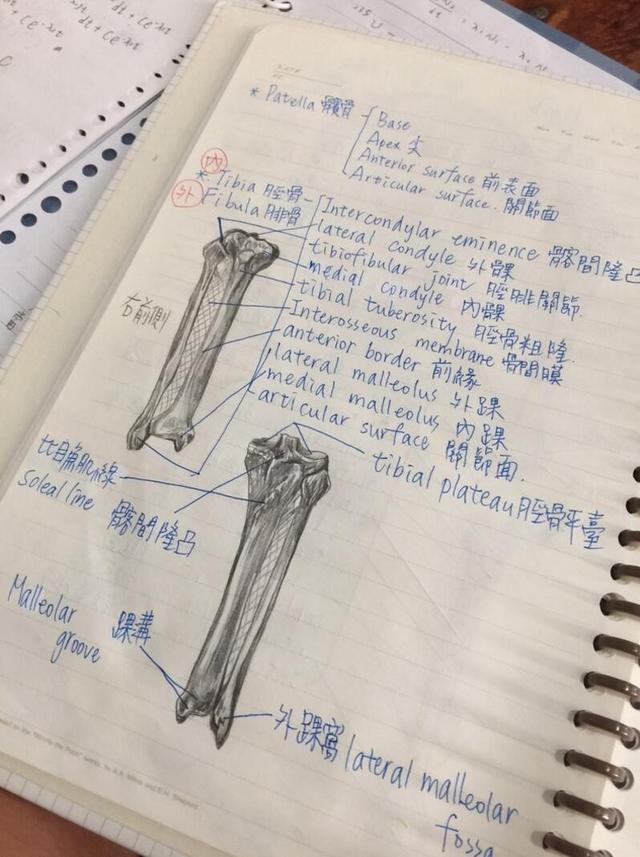 dt + Ce^-λ2t
dt + Ce^-λ2t
DATE
* Patella 髕骨
Base
Apex 尖
Anterior surface 前表面
Articular surface. 關節面
內
* Tibia 脛骨
外
Fibula 腓骨
Intercondylar eminence 髁間隆凸
lateral condyle 外髁
tibiofibular joint 脛腓關節.
medial condyle 內髁
tibial tuberosity 脛骨粗隆.
Interosseous membrane 骨間膜
anterior border 前緣
lateral malleolus 外踝
medial malleolus 內踝
articular surface 關節面.
右前側
tibial plateau 脛骨平臺
比目魚肌線
soleal line
髁間隆凸
Malleolar
groove
踝溝
外踝窩 lateral malleolar
fossa